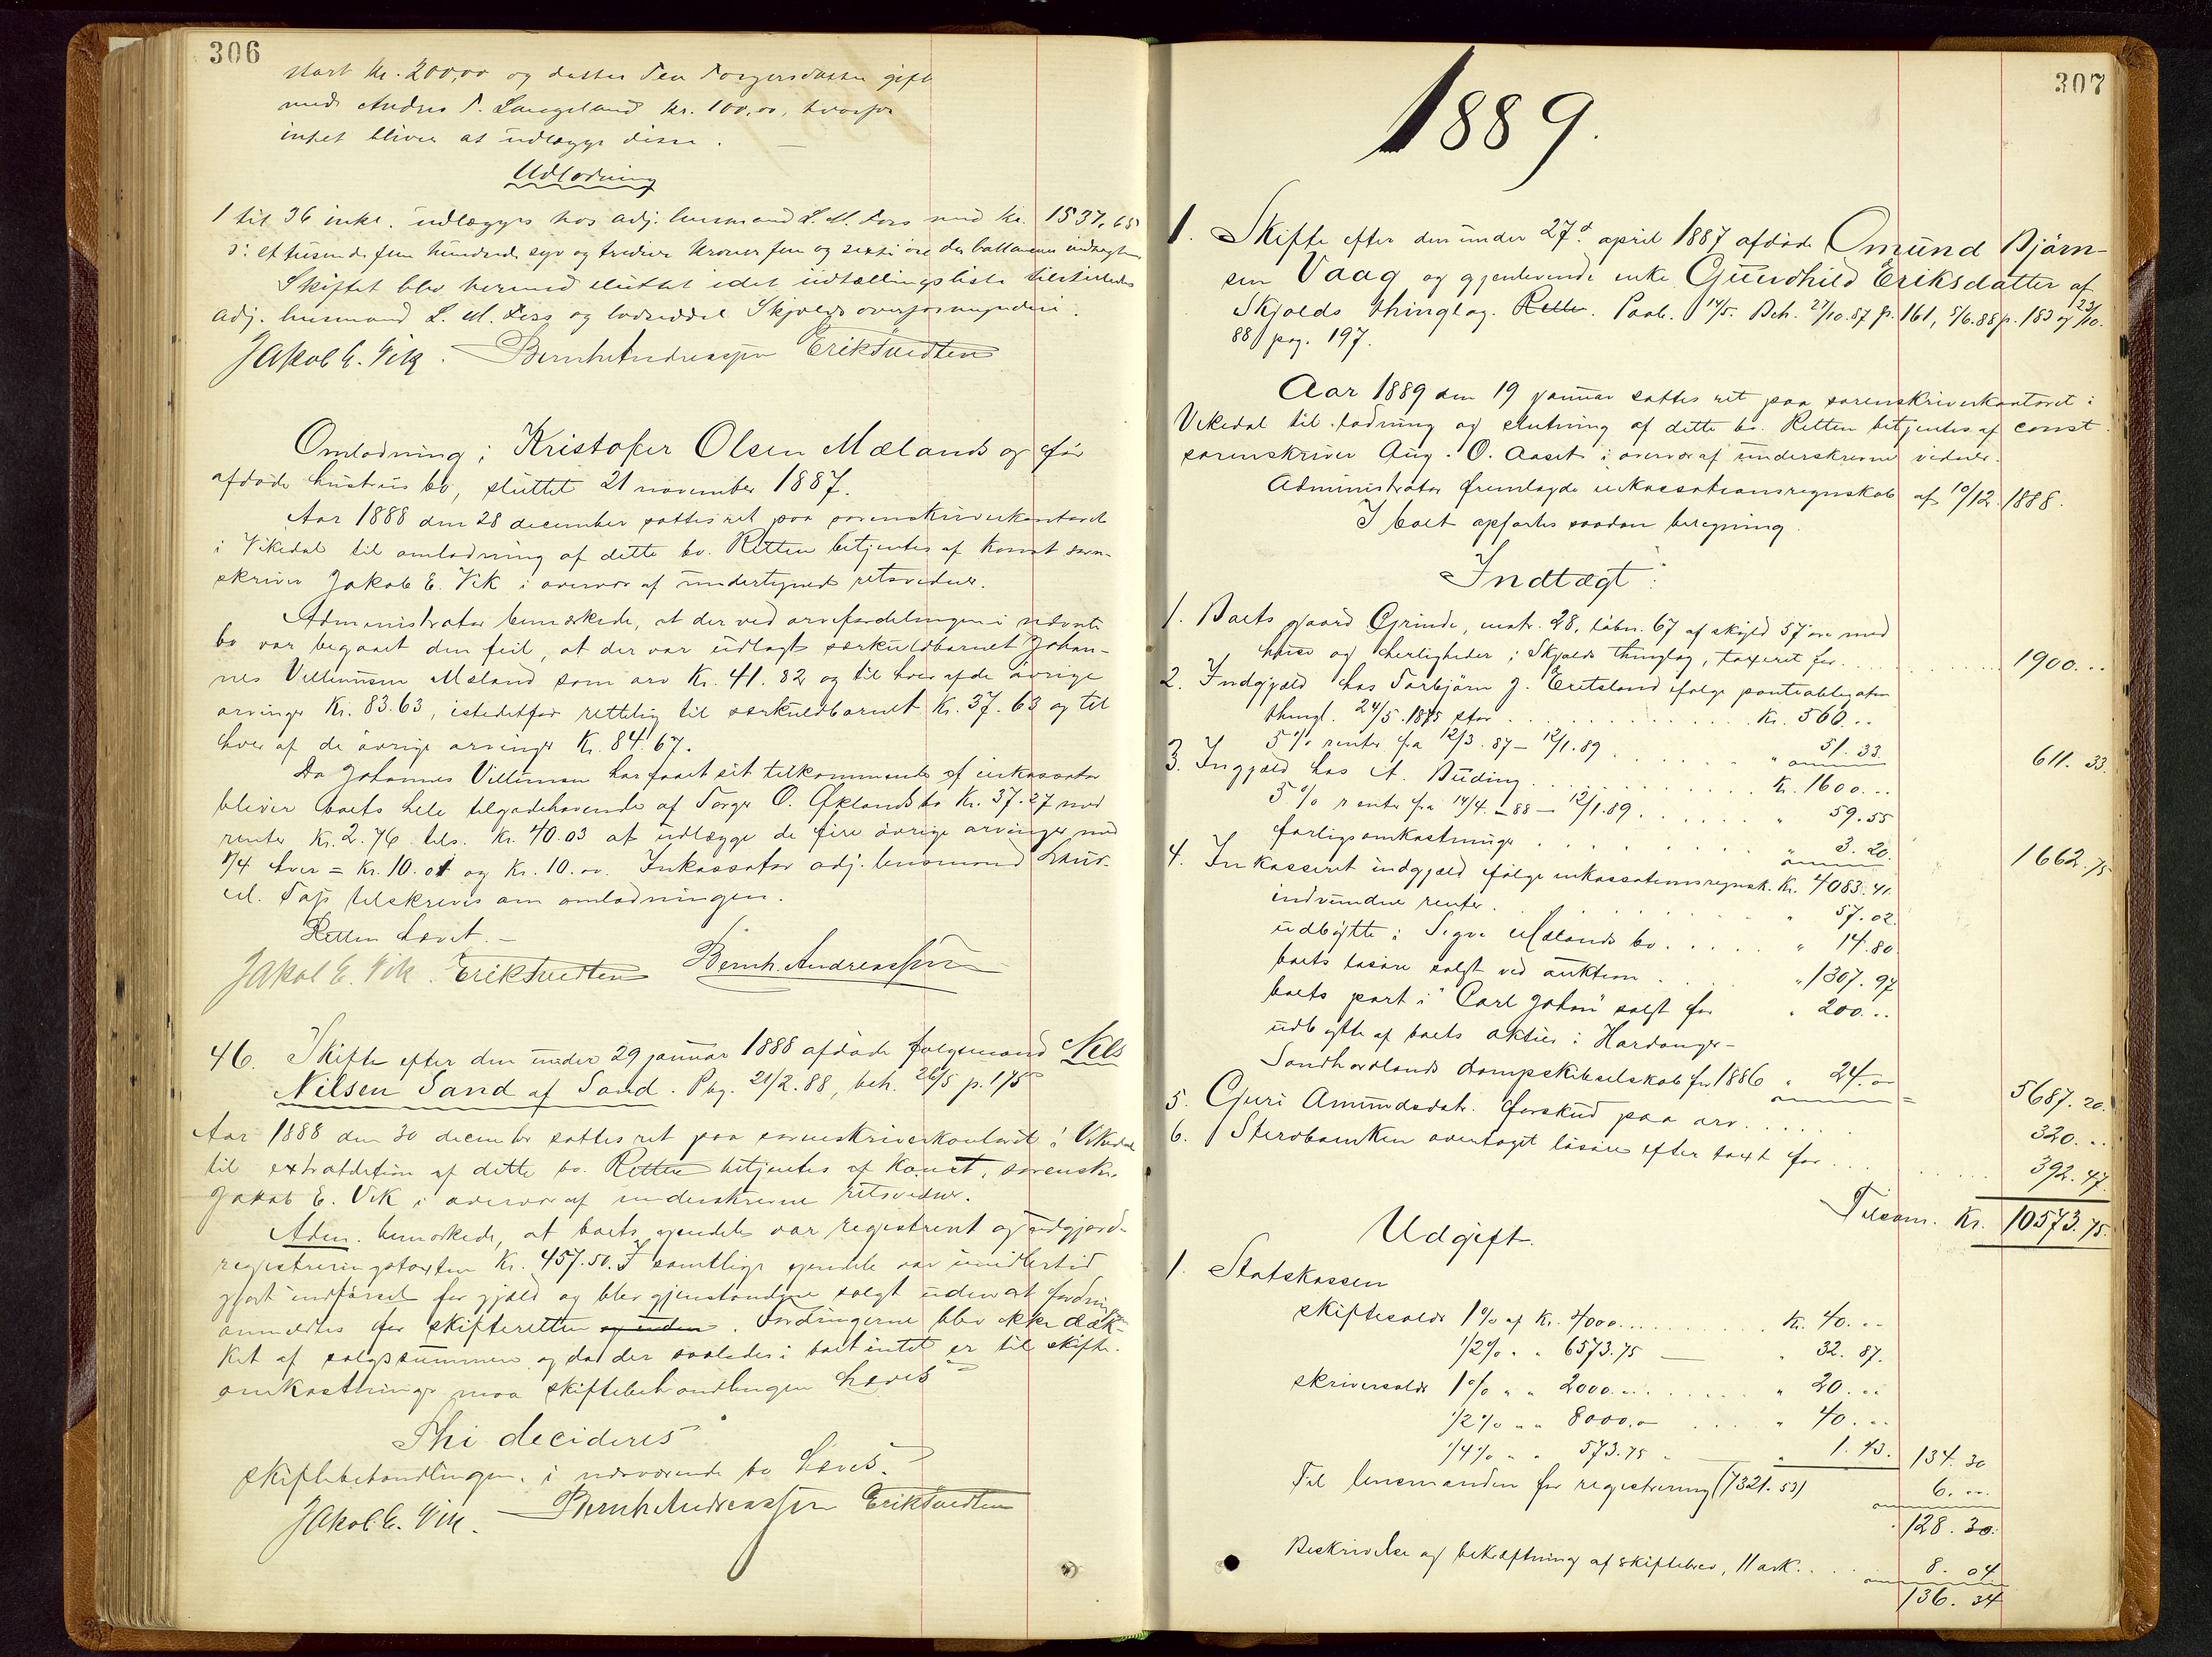 306
start Kr. 200,00 og datter Tea Torgersdatter gift
med Andres T. Langeland Kr. 100,00, hvorfor
intet bliver at udlægge disse.
Udlodning
1 til 36 inkl. udlægges hos adj. lensmand L. M. Foss med Kr. 1537,65
ɔ: et tusinde fem hundrede syv og tredive kroner fem og sexti øre der ballancerer indtægten
Skiftet blev hermed sluttet idet udtællingsliste tilstilledes
adj. lensmand L. M. Foss og lodseddel Skjolds overformynderi.
Jakob E. Vik. Bernh. Andreassen Erik Tvedten
Omlodning i Kristofer Olsen Mælands og før
afdøde hustrus bo, sluttet 21 november 1887.
Aar 1888 den 28 december sattes ret paa sorenskriverkontoret
i Vikedal til omlodning af dette bo. Retten betjentes af konst soren-
skriver Jakob E. Vik i overvær af undertegnede retsvidner.
Administrator bemærkede, at der ved arvefordelingen i nævnte
bo var begaaet den feil, at der var udlagt særkuldbarnet Johan-
nes Villumsen Mæland som arv Kr. 41.82 og til hver af de øvrige
arvinger Kr. 83.63, istedetfor rettelig til særkuldbarnet Kr. 37.63 og til
hver af de øvrige arvinger Kr. 84.67.
Da Johannes Villumsen har faaet sit tilkommende af inkassator
bliver boets hele tilgodehavende af Torger O. Øklands bo Kr. 37.27 med
renter Kr. 2.76 tils. Kr. 40.03 at udlægge de fire øvrige arvinger med
1/4 hver = Kr. 10.01 og Kr. 10.00. Inkassator adj. lensmand Laur.
M. Foss tilskrives om omlodningen.
Retten hævet.
Jakob E. Vik. Erik Tvedten Bernh. Andreassen
46. Skifte efter den under 29 januar 1888 afdøde følgemand Nels
Nilsen Sand af Sand. Pbg. 21/2.88, beh. 26/5 p. 175
Aar 1888 den 30 december sattes ret paa sorenskriverkontoret i Vikedal
til extradition af dette bo. Retten betjentes af Konst. sorenskr.
Jakob E. Vik i overvær af underskrevne retsvidner.
Adm. bemærkede, at boets eiendele var registreret og udgjorde
registreringstaxten Kr. 457.50. I samtlige eiendele var imidlertid
gjort indførsel for gjæld og blev gjenstandene solgt uden at fordringen
anmeldtes for skifteretten og uden. Fordringerne blev ikke dæk-
ket af salgssummen og da der saaledes i boet intet er til skifte-
omkostninger maa skiftebehandlingen hæves
Thi decideres
skiftebehandlingen i nærværende bo hæves.
Jakob E. Vik. Bernh. Andreassen Erik Tvedten
307
1889.
1. Skifte efter den under 27de april 1887 afdøde Omund Bjørn-
sen Vaag og gjenlevende enke Gundhild Eriksdatter af
Skjolds thinglag. Retten. Paab. 14/5. Beh. 27/10.87 p. 161, 5/6.88 p. 183 og 23/10.
88 pag. 197.
Aar 1889 den 19 januar sattes ret paa sorenskriverkontoret i
Vikedal til lodning og slutning af dette bo. Retten betjentes af const.
sorenskriver Aug. O. Aaset i overvær af underskrevne vidner.
Administrator fremlagde inkassationsregnskab af 10/12.1888.
I boet opførtes saadan beregning.
Indtægt:
1. Boets gaard Grinde, matr. 28, løbn. 67 af skyld 57 øre med
huse og herligheder i Skjolds thinglag, taxeret for... 1900...
2. Indgjæld hos Torbjørn J. Eritsland ifølge panteobligation
thingl. 24/5.1875 stor... Kr. 560...
5% renter fra 12/3.87 - 12/1.89... " 51.33 611.33.
3. Ingjæld hos A. Buding... Kr. 1600...
5% renter fra 14/4.88 - 12/1.89... " 59.55
forligsomkostninger... " 3.20. 1662.75
4. Inkasseret indgjæld ifølge inkassationsregnsk. Kr. 4083.41.
indvundne renter... " 57.02.
udbytte i Sigva Mælands bo... " 14.80.
boets løsøre solgt ved auktion... " 1307.97
boets part i "Carl Johan" solgt for " 200...
udbytte af boets aktier i Hardanger-
Søndhordlands dampskibselskab for 1886 " 24.00 5687.20.
5. Guri Amundsdatr. forskud paa arv... 320...
6. Stervboenken overtaget løsøre efter taxt for... 392.47.
Tilsam. Kr. 10573.75.
Udgift.
1. Statskassen
skiftesolds 1% af Kr. 4000... Kr. 40...
1/2% " " 6573.75 — " 32.87.
skriversolds 1% " " 2000... " 20...
1/2% " " 8000.00 ... " 40...
1/4% " " 573.75 " " 1.43. 134.30
Til lensmanden for registrering (7321.53) 6...
128.30.
Beskrivelse og bekræftning af skiftebrev, 11 ark... 8.04
136.34